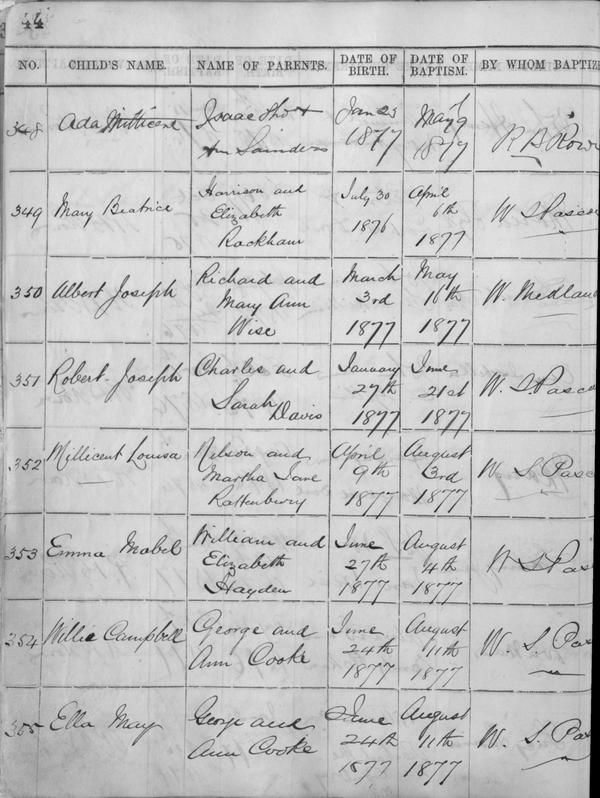 44
NO. CHILD'S NAME. NAME OF PARENTS. DATE OF BIRTH. DATE OF BAPTISM. BY WHOM BAPTIZE
348 Ada Millicent Isaac Tho & Ann Saunders Jan 23 1877 May 9 1877 R B Row
349 Mary Beatrice Harrison and Elizabeth Rackham July 30 1876 April 6th 1877 W S Pascoe
350 Albert Joseph Richard and Mary Ann Wise March 3rd 1877 May 16th 1877 W. Medland
351 Robert Joseph Charles and Sarah Davis January 27th 1877 June 21st 1877 W. S. Pasco
352 Millicent Louisa Nelson and Martha Jane Rattenbury April 9th 1877 August 3rd 1877 W. S. Pasc
353 Emma Mabel William and Elizabeth Hayden June 27th 1877 August 4th 1877 W S Pas
354 Willie Campbell George and Ann Cooke June 24th 1877 August 11th 1877 W. S. Pas
355 Ella May George and Ann Cooke June 24th 1877 August 11th 1877 W. S. Pas